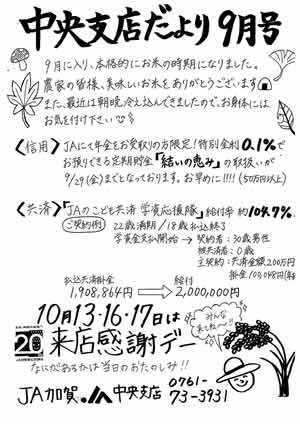 中央支店だより 9月号
9月に入り、本格的にお米の時期になりました。
農家の皆様、美味しいお米をありがとうございます
また、最近は朝晩冷え込んできましたので、お身体には
お気を付け下さい
〈信用〉JAにて年金をお受取りの方限定!特別金利0.1%で
お預りできる定期貯金「結いの恵み」の取扱いが
9/29(金)までとなっております。お早めに!!!!(50万円以上)
〈共済〉「JAのこども共済 学資応援隊」給付率 約104.7%
ご契約例
22歳満期/18歳払込終了
学資金支払開始→契約者:30歳男性
被共済者:0歳
主契約:共済金額200万円
掛金:103,048円
払込共済掛金 給付
1,908,864円⇒2,000,000円
10月13・16・17日は
みんな来たね〜
20
来店感謝デー
なにがあるかは当日のおたのしみ!!
JA加賀 JA 中央支店 0761-
73-3931